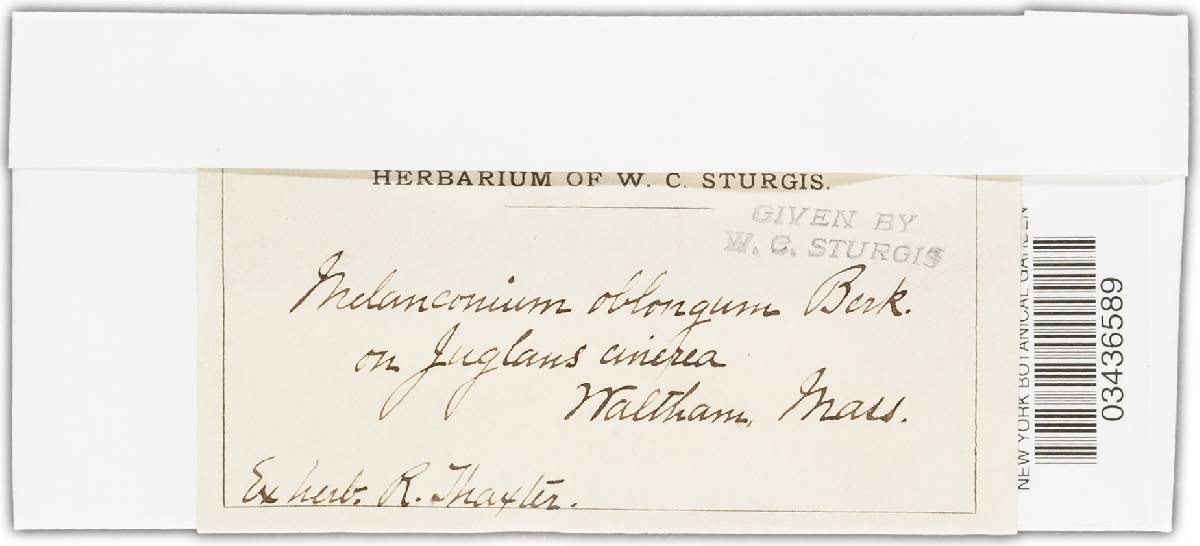 HERBARIUM OF W. C. STURGIS.
GIVEN BY
W. C. STURGIS
Melanconium oblongum Berk.
on Juglans cinerea
Waltham, Mass.
Ex herb. R. Thaxter.
NEW YORK BOTANICAL GARDEN
03436589